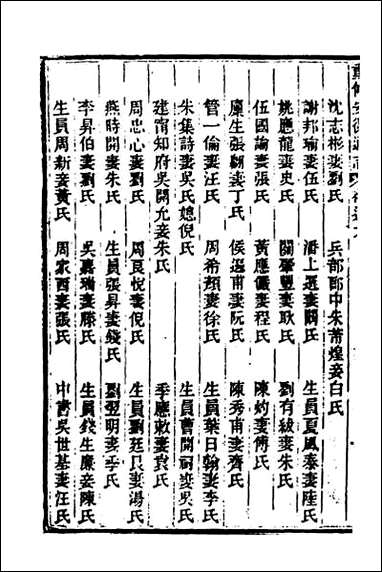 重修安徽通志
沈志彬妻劉氏　兵部郎中朱莆煌妾白氏
謝邦瑜妻伍氏　潘上選妻闞氏　生員夏風泰妻陸氏
姚應龍妻史氏　闞肇豐妻耿氏　劉有紱妻朱氏
伍國諭妻張氏　黃應儀妻程氏　陳妁妻傅氏
廩生張翩妻丁氏　候選甫妻阮氏　陳秀甫妻齊氏
管一倫妻汪氏　周希顏妻徐氏　生員葉日翰妻李氏
朱集詩妻吳氏媳倪氏　生員曹開嗣妾吳氏
建甯知府吳開允妾朱氏　季應敕妻袁氏
周忠心妻劉氏　周良悅妻倪氏　生員劉廷良妻湯氏
燕時開妻朱氏　生員張昇妻錢氏　劉翌明妻李氏
李昇伯妻劉氏　吳嘉瑞妻滕氏　生員錢生廉妾陳氏
生員周新妾黃氏　周家酉妻張氏　中書吳世基妻汪氏